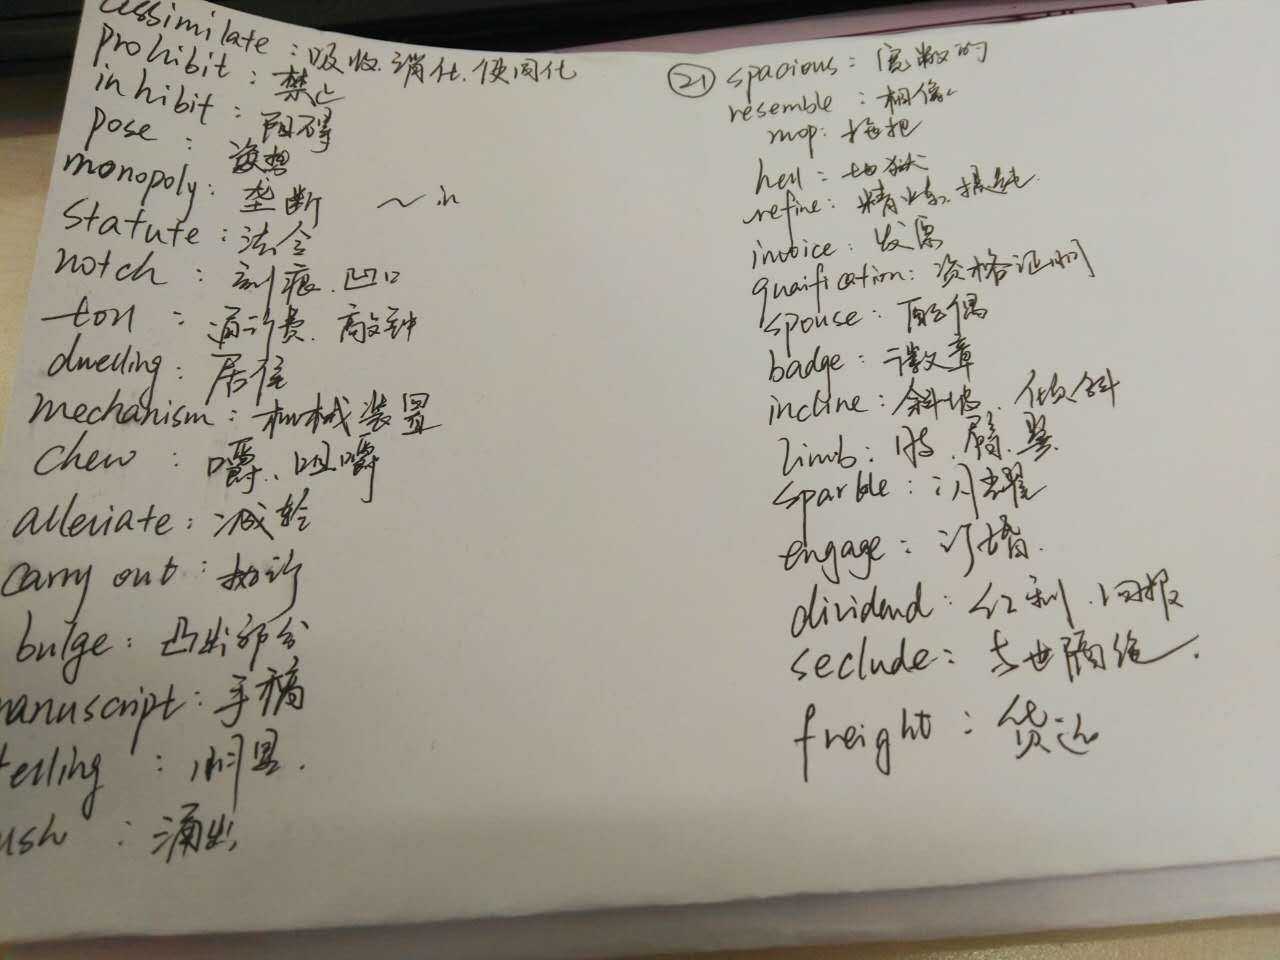 assimilate：吸收.消化.使同化
prohibit：禁止
inhibit：阻碍
pose：设想
monopoly：垄断 ～in
statute：法令
notch：刻痕.凹口
toll：通行费.敲钟
dwelling：居住
mechanism：机械装置
chew：嚼、咀嚼
alleviate：减轻
carry out：执行
bulge：凸出部分
manuscript：手稿
telling：明显.
ush：涌出
㉑ spacious：宽敞的
resemble：相像
mop：拖把
hell：地狱
refine：精炼.提纯.
invoice：发票
quaification：资格证明
spouse：配偶
badge：徽章
incline：斜坡.倾斜
limb：肢.臂.翼
sparkle：闪耀
engage：订婚.
dividend：红利.回报
seclude：与世隔绝.
freight：货运